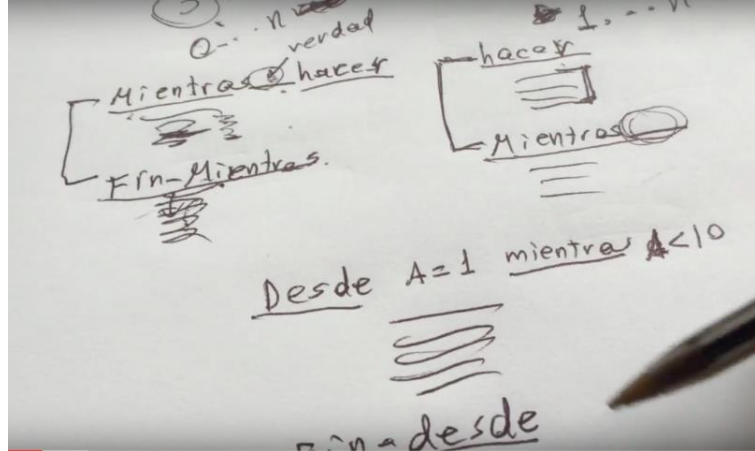 0... n
verdad
Mientras hacer
Fin-Mientras.
1... n
hacer
Mientras
Desde A=1 mientras A<10
Fin-desde